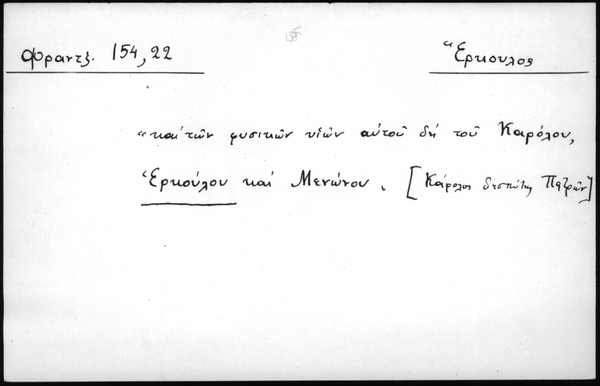 Φραντζ. 154, 22
Ἕρκουλος
"καὶ τῶν φυσικῶν υἱῶν αὐτοῦ δὴ τοῦ Καρόλου,
Ἑρκούλου καὶ Μενώνου. [Κάρολος δεσπότης Πατρῶν]